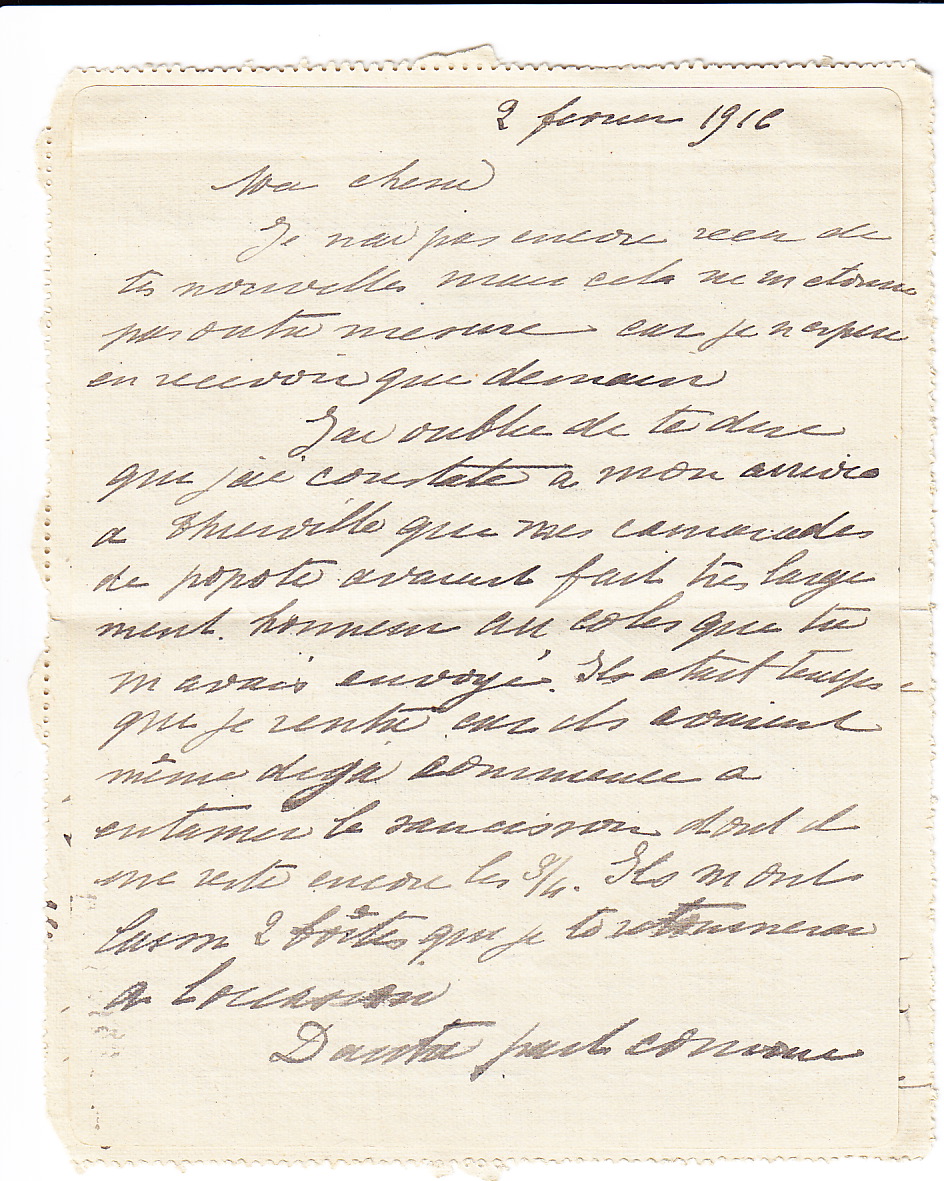 2 fevrier 1916
Ma cherie
Je nai pas encore recu de
tes nouvelles mais cela ne m etonne
pas outre mesure car je n espere
en recevoir que demain
J'ai oublie de te dire
que j'ai constate a mon arrivee
a Thierville que mes camarades
de popote avaient fait tres large
ment honneur au colis que tu
m avais envoyé. Il etait temps
que je rentre car ils avaient
même dejà commence a
entamer le saucisson dont il
me reste encore les 3/4. Ils m ont
laisse 2 boîtes que je te retournerai
a l occasion
Dautre part comme